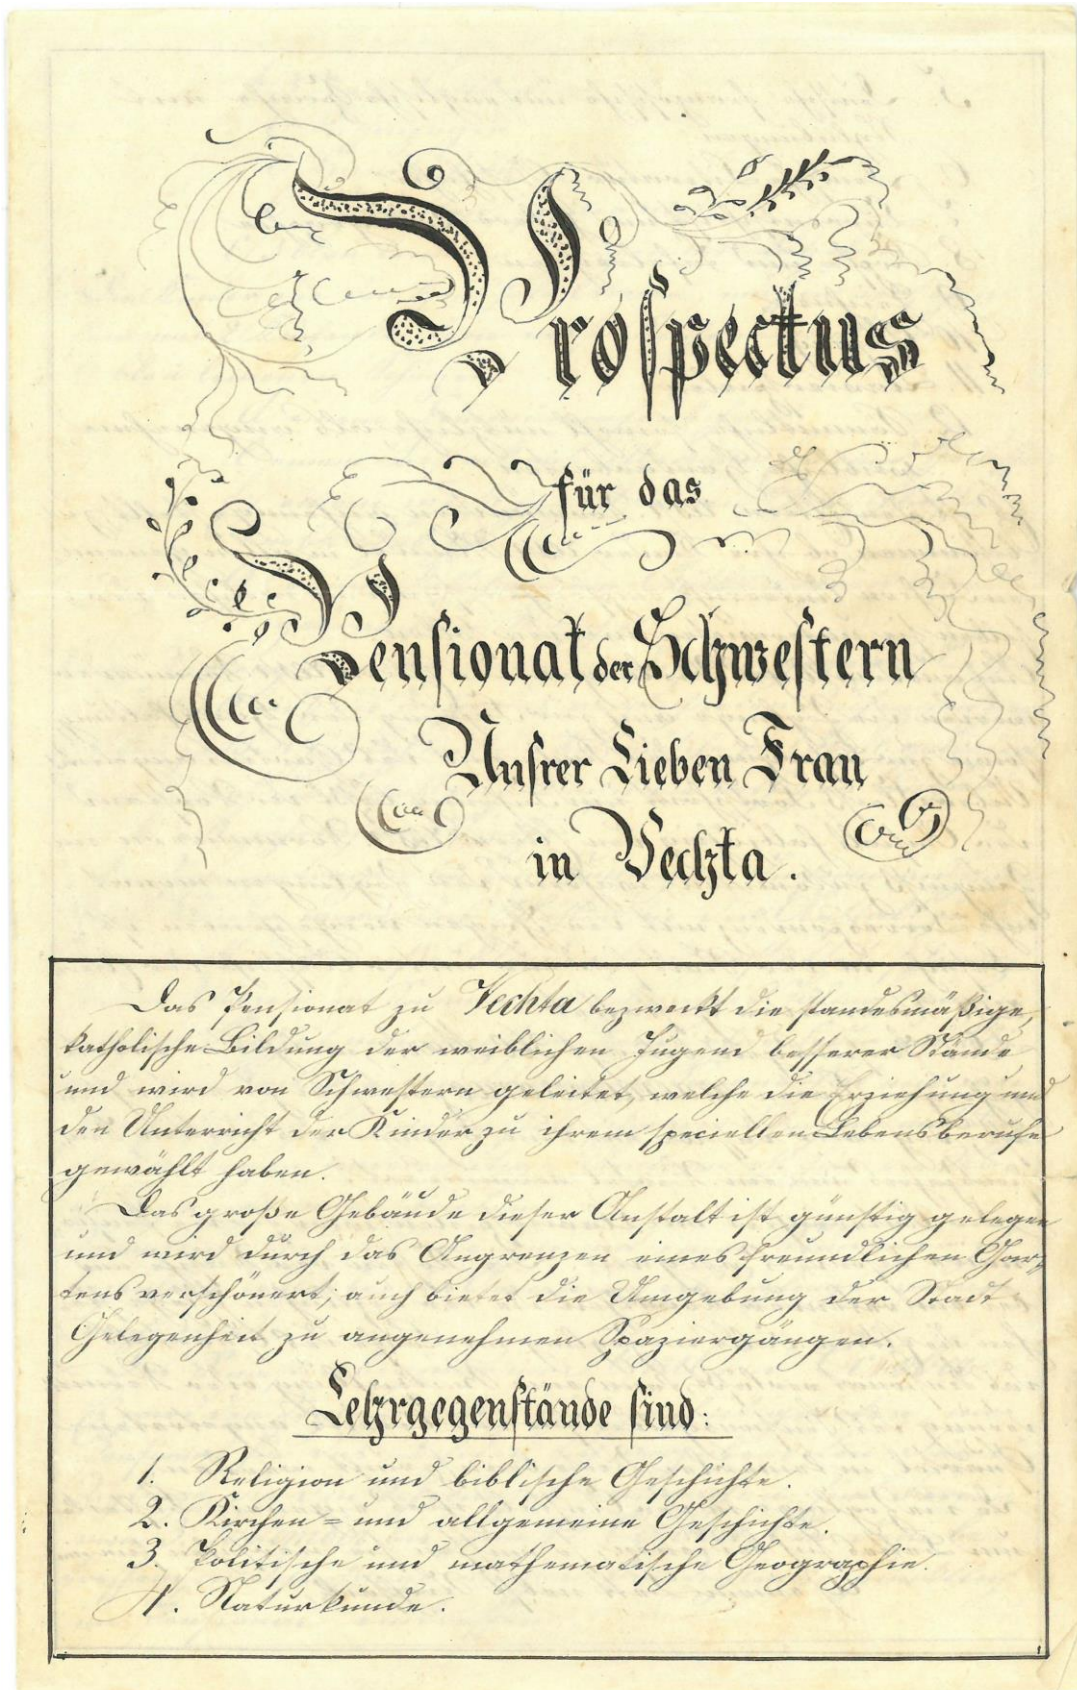 Prospectus
für das
Pensionat der Schwestern
Unsrer Lieben Frau
in Vechta.
Das Pensionat zu Vechta bezweckt die standesmäßige,
katholische Bildung der weiblichen Jugend besserer Stände
und wird von Schwestern geleitet, welche die Erziehung und
den Unterricht der Kinder zu ihrem speciellen Lebensberufe
gewählt haben.
Das große Gebäude dieser Anstalt ist günstig gelegen
und wird durch das Angrenzen eines freundlichen Gar-
tens verschönert; auch bietet die Umgebung der Stadt
Gelegenheit zu angenehmen Spaziergängen.
Lehrgegenstände sind:
1. Religion und biblische Geschichte.
2. Kirchen= und allgemeine Geschichte.
3. Politische und mathematische Geographie.
4. Naturkunde.